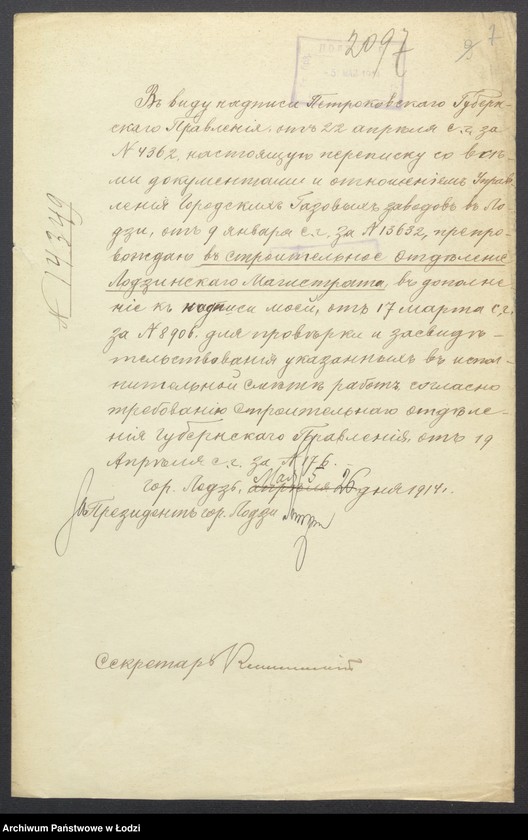 2097
7
Въ виду надписи Петроковскаго Губерн-
скаго Правленія, отъ 22 апрѣля с.г. за
N 4362, настоящую переписку со всѣ-
ми документами и отношеніемъ Управ-
ленія Городскихъ Газовыхъ заводовъ въ Ло-
дзи, отъ 9 января с.г. за N 13632, препро-
вождаю въ строительное отдѣленіе
Лодзинскаго Магистрата, въ дополне-
ніе къ надписи моей, отъ 17 марта с.г.
за N 8906, для провѣрки и засвидѣ-
тельствованія указанныхъ въ испол-
нительной смѣтѣ работъ, согласно
требованію Строительнаго отдѣле-
нія Губернскаго Правленія, отъ 19
Апрѣля с.г. за N 176.
Мая 5
гор. Лодзь, апрѣля 26 дня 1914 г.
За Президентъ гор. Лодзи
Секретарь
N 14349
Archiwum Państwowe w Łodzi